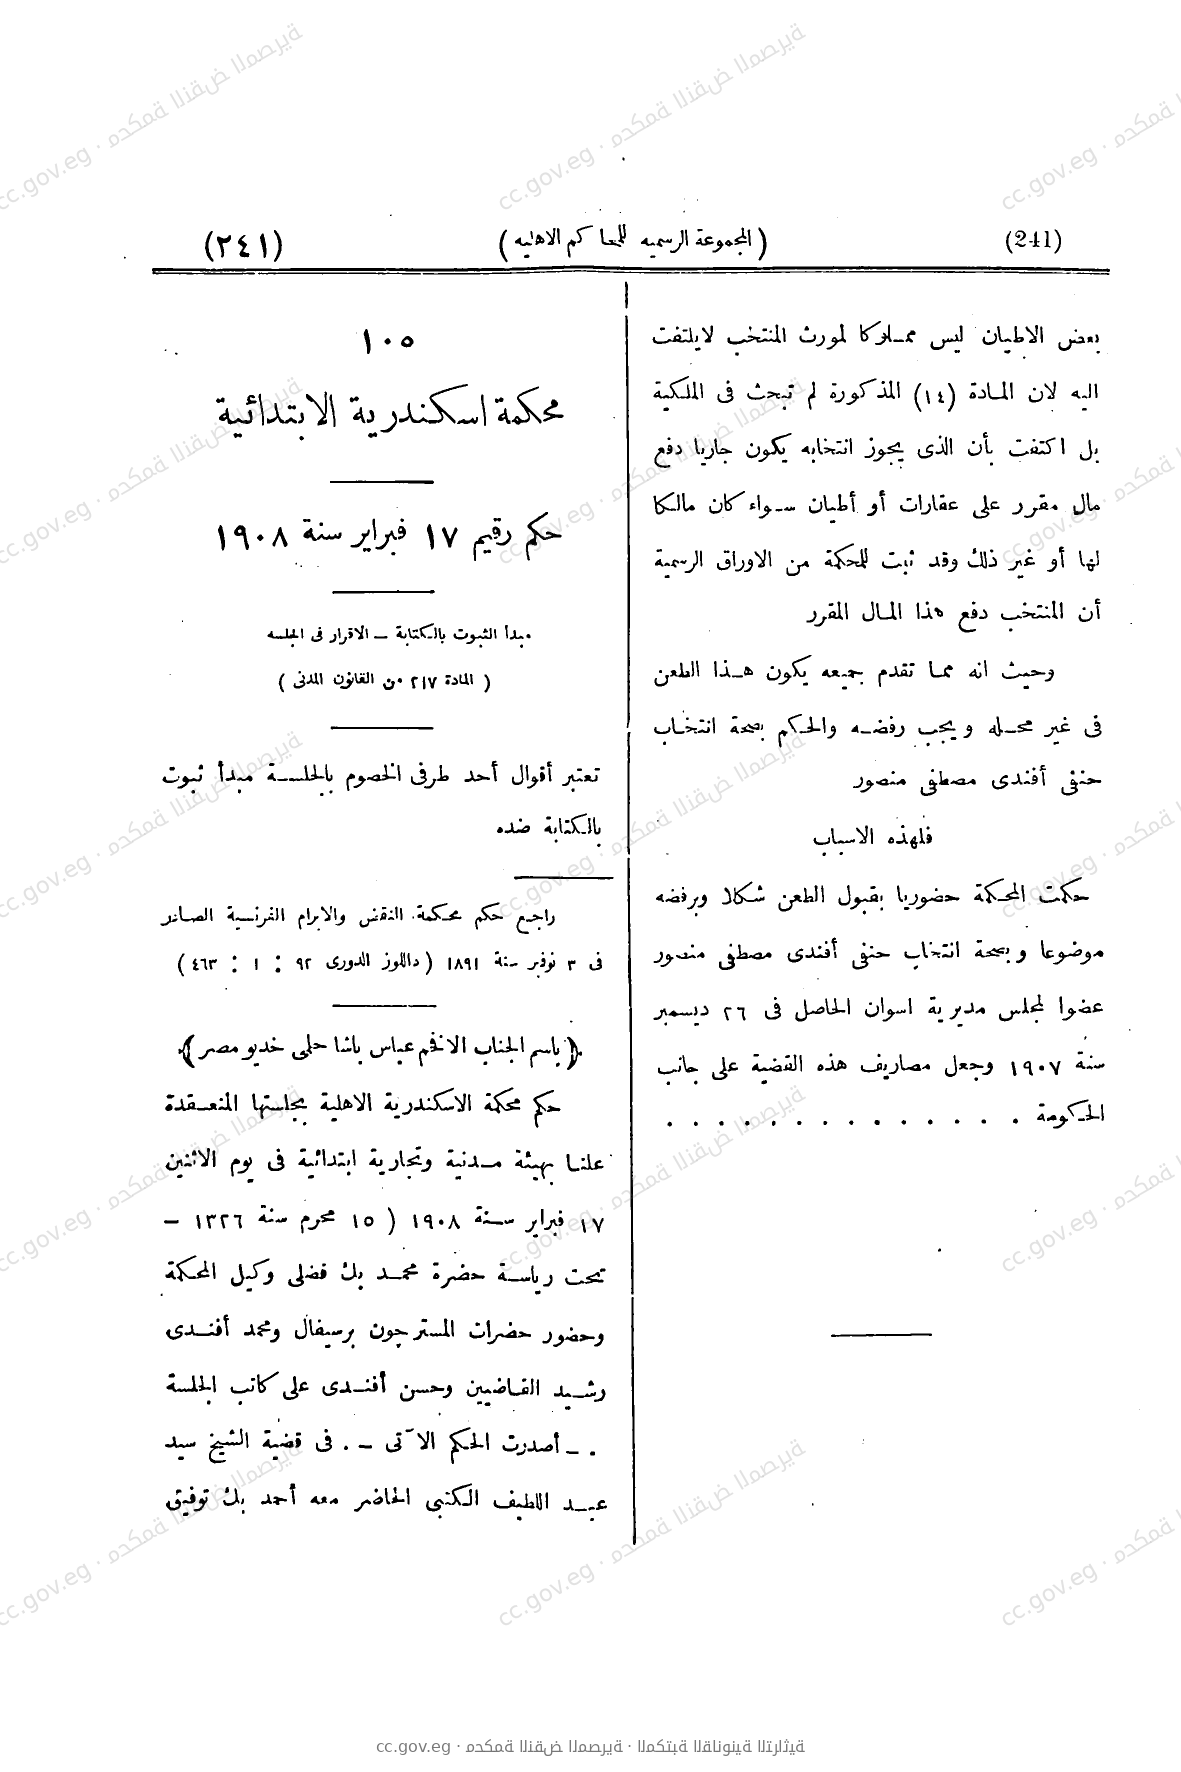 (241) (المجموعة الرسميه للمحاكم الاهليه) (٢٤١)
بعض الاطيان ليس مملوكا لمورث المنتخب لايلتفت
اليه لان المادة (١٤) المذكورة لم تبحث فى الملكية
بل اكتفت بأن الذى يجوز انتخابه يكون جاريا دفع
مال مقرر على عقارات أو أطيان سواء كان مالكا
لها أو غير ذلك وقد ثبت للمحكمة من الاوراق الرسمية
أن المنتخب دفع هذا المال المقرر
وحيث انه مما تقدم جميعه يكون هذا الطعن
فى غير محله ويجب رفضه والحكم بصحة انتخاب
حنفى أفندى مصطفى منصور
فلهذه الاسباب
حكمت المحكمة حضوريا بقبول الطعن شكلا وبرفضه
موضوعا وبصحة انتخاب حنفى أفندى مصطفى منصور
عضوا لمجلس مديرية اسوان الحاصل فى ٢٦ ديسمبر
سنة ١٩٠٧ وجعل مصاريف هذه القضية على جانب
الحكومة . . . . . . . . . . . . . .
١٠٥
محكمة اسكندرية الابتدائية
حكم رقيم ١٧ فبراير سنة ١٩٠٨
مبدأ الثبوت بالكتابة – الاقرار فى الجلسه
( المادة ٢١٧ من القانون المدنى )
تعتبر أقوال أحد طرفى الخصوم بالجلسة مبدأ ثبوت
بالكتابة ضده
راجع حكم محكمة النقض والابرام الفرنسية الصادر
فى ٣ نوفبر سنة ١٨٩١ (داللوز الدورى ٩٢ : ١ : ٤٦٣)
﴿باسم الجناب الافخم عباس باشا حلمى خديو مصر﴾
حكم محكمة الاسكندرية الاهلية بجلستها المنعقدة
علنا بهيئة مدنية وتجارية ابتدائية فى يوم الاثنين
١٧ فبراير سنة ١٩٠٨ ( ١٥ محرم سنة ١٣٢٦ –
تحت رياسة حضرة محمد بك فضلى وكيل المحكمة
وحضور حضرات المستر چون برسيفال ومحمد أفندى
رشيد القاضيين وحسن أفندى على كاتب الجلسة
. – أصدرت الحكم الآتى – . فى قضية الشيخ سيد
عبد اللطيف الكتبى الحاضر معه أحمد بك توفيق
cc.gov.eg · محكمة النقض المصرية · المكتبة القانونية التراثية